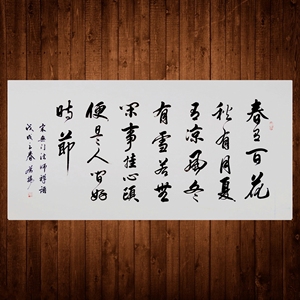 春有百花
秋有月夏
有涼風冬
有雪若無
閑事挂心頭
便是人間好
時節
宋無门法師禅詩
戊戌之春